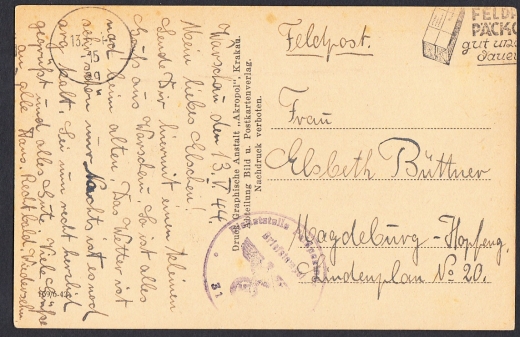 Warschau den 13.V.44.
Mein liebes Elschen!
Sende Dir hiermit einen kleinen
Gruß aus Warschau. So ist alles
noch beim alten. Das Wetter ist
sehr schön nur Nachts ist es noch
arg kalt. Sei nun recht herzlich
gegrüßt und alles Gute. Viele Grüße
an alle Hans. Recht bald Wiedersehn.
Druck: Graphische Anstalt „Akropol“, Krakau.
Abteilung Bild u. Postkartenverlag.
Nachdruck verboten.
Feldpost.
FELDP
PÄCKC
gut und
dauer
Frau
Elsbeth Büttner
Magdeburg-Hopfeng.
Lindenplan No 20.